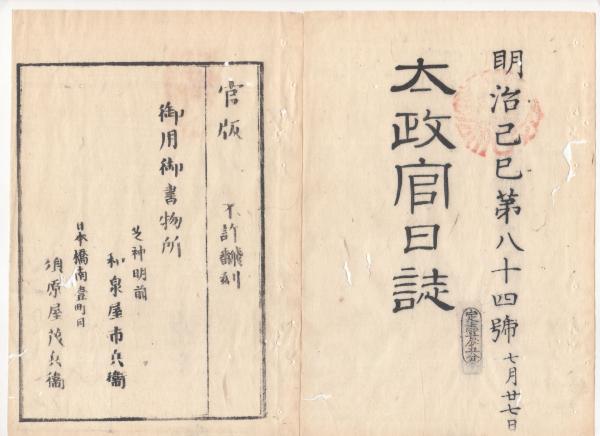 明治己巳第八十四號 七月廿七日
太政官日誌
定價壹匁五分
官版 不許翻刻
御用御書物所
芝神明前
和泉屋市兵衞
日本橋南壹町目
須原屋茂兵衞